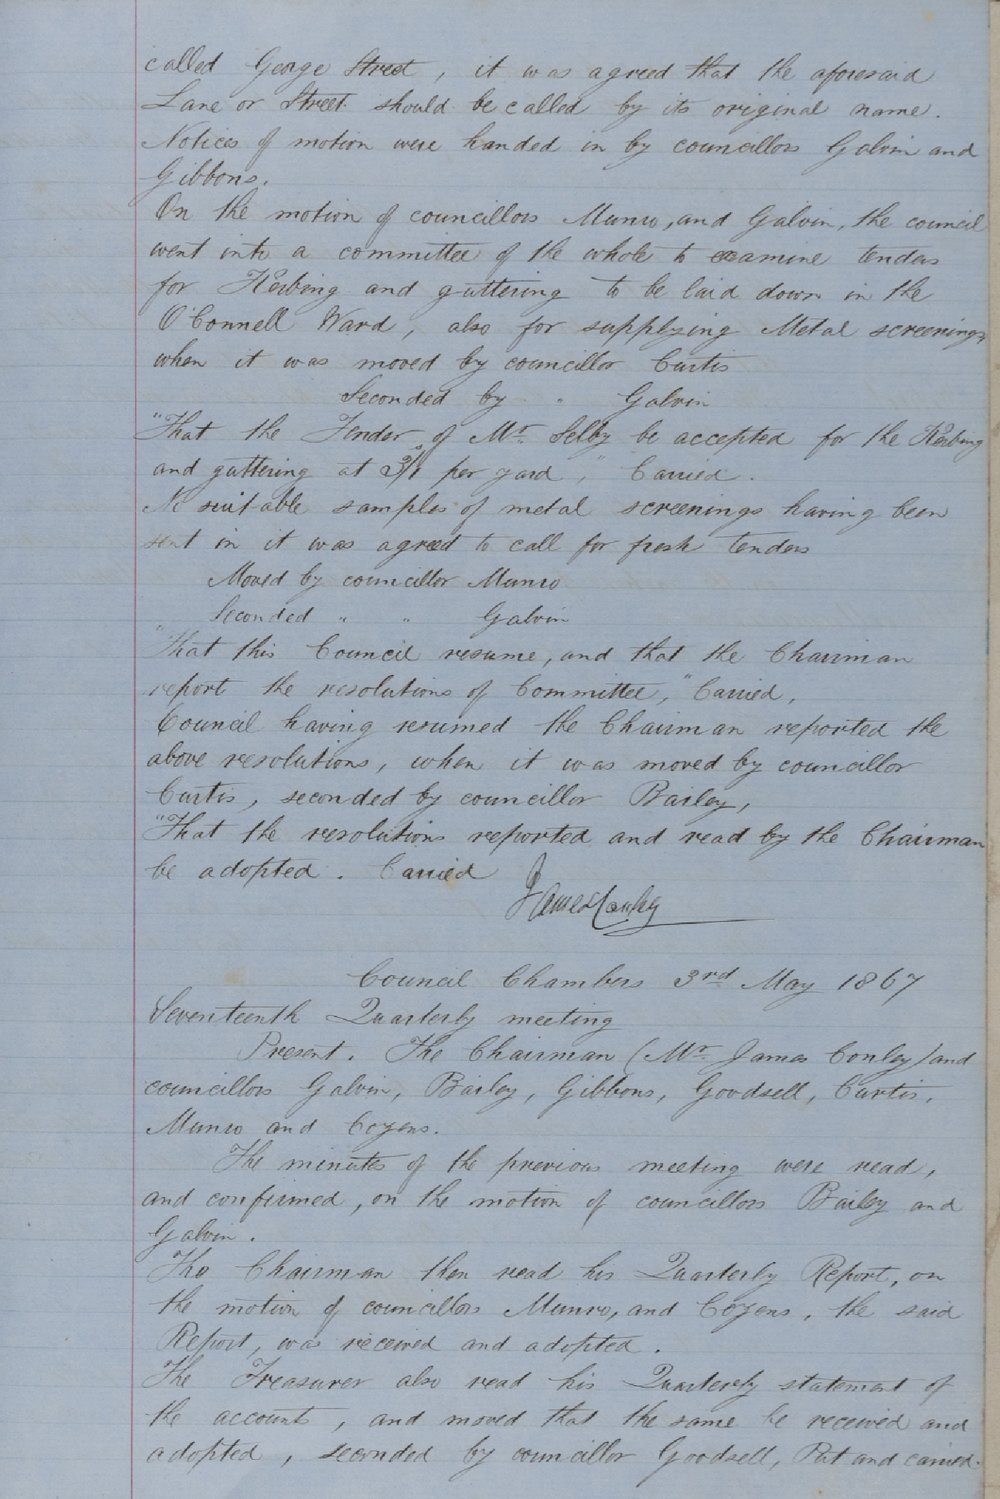 called George Street, it was agreed that the aforesaid
Lane or Street should be called by its original name.
Notices of motion were handed in by councillors Galvin and
Gibbons.
On the motion of councillors Munro, and Galvin, the council
went into a committee of the whole to examine tenders
for Kerbing and guttering to be laid down in the
O'Connell Ward, also for supplying Metal screenings
when it was moved by councillor Curtis
Seconded by " Galvin
"That the Tender of Mr. Selby be accepted for the Kerbing
and guttering at 3/1 per yard," Carried.
No suitable samples of metal screenings having been
sent in it was agreed to call for fresh tenders
Moved by councillor Munro
Seconded " " Galvin
"That this Council resume, and that the Chairman
report the resolutions of Committee," Carried,
Council having resumed the Chairman reported the
above resolutions, when it was moved by councillor
Curtis, seconded by councillor Bailey,
"That the resolutions reported and read by the Chairman
be adopted. Carried
James Conley
Council Chambers 3rd May 1867
Seventeenth Quarterly meeting
Present. The Chairman (Mr. James Conley) and
councillors Galvin, Bailey, Gibbons, Goodsell, Curtis,
Munro and Cozens.
The minutes of the previous meeting were read,
and confirmed, on the motion of councillors Bailey and
Galvin.
The Chairman then read his Quarterly Report, on
the motion of councillors Munro, and Cozens, the said
Report, was received and adopted.
The Treasurer also read his Quarterly statement of
the accounts, and moved that the same be received and
adopted, seconded by councillor Goodsell, Put and carried.